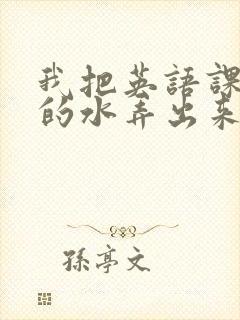 我把英語課
的水弄出來
孫亭文